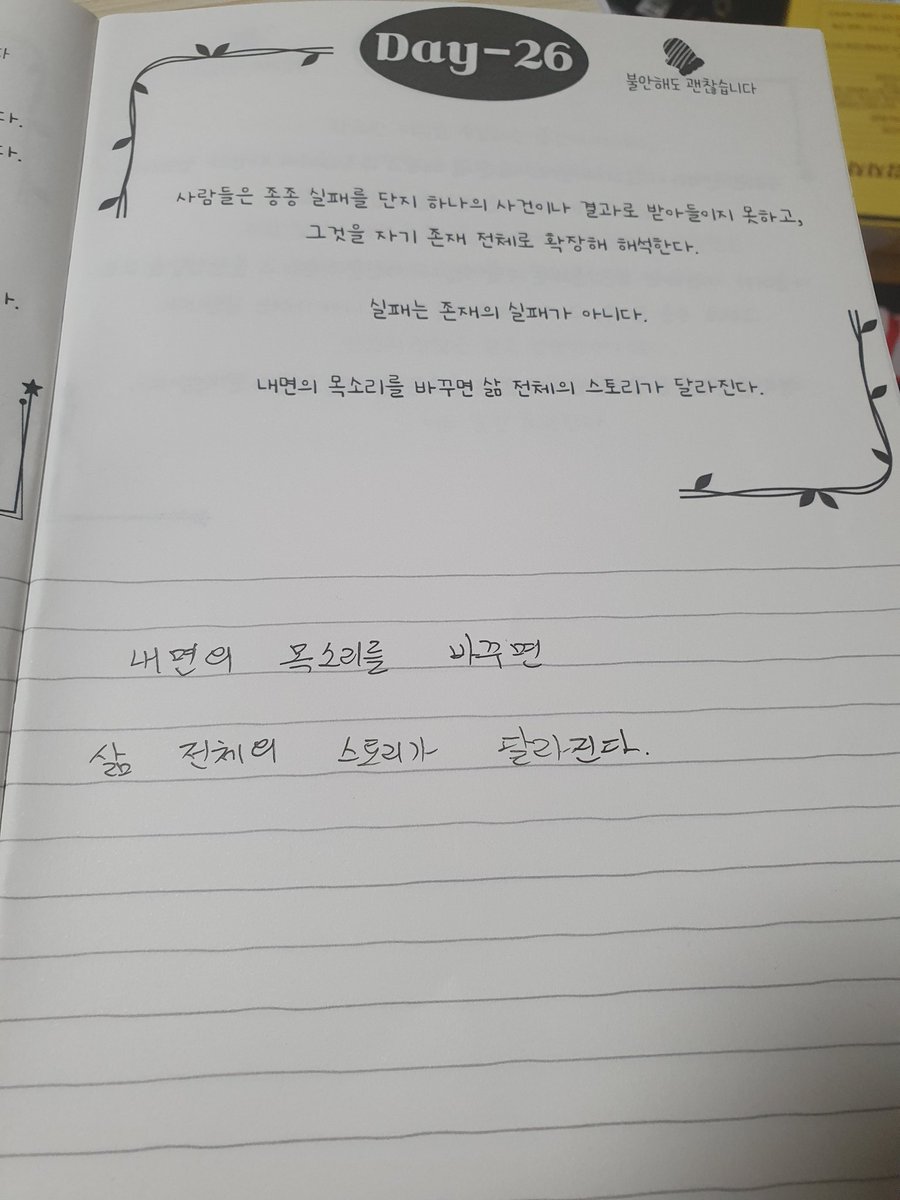 Day-26
불안해도 괜찮습니다
사람들은 종종 실패를 단지 하나의 사건이나 결과로 받아들이지 못하고,
그것을 자기 존재 전체로 확장해 해석한다.
실패는 존재의 실패가 아니다.
내면의 목소리를 바꾸면 삶 전체의 스토리가 달라진다.
내면의 목소리를 바꾸면
삶 전체의 스토리가 달라진다.